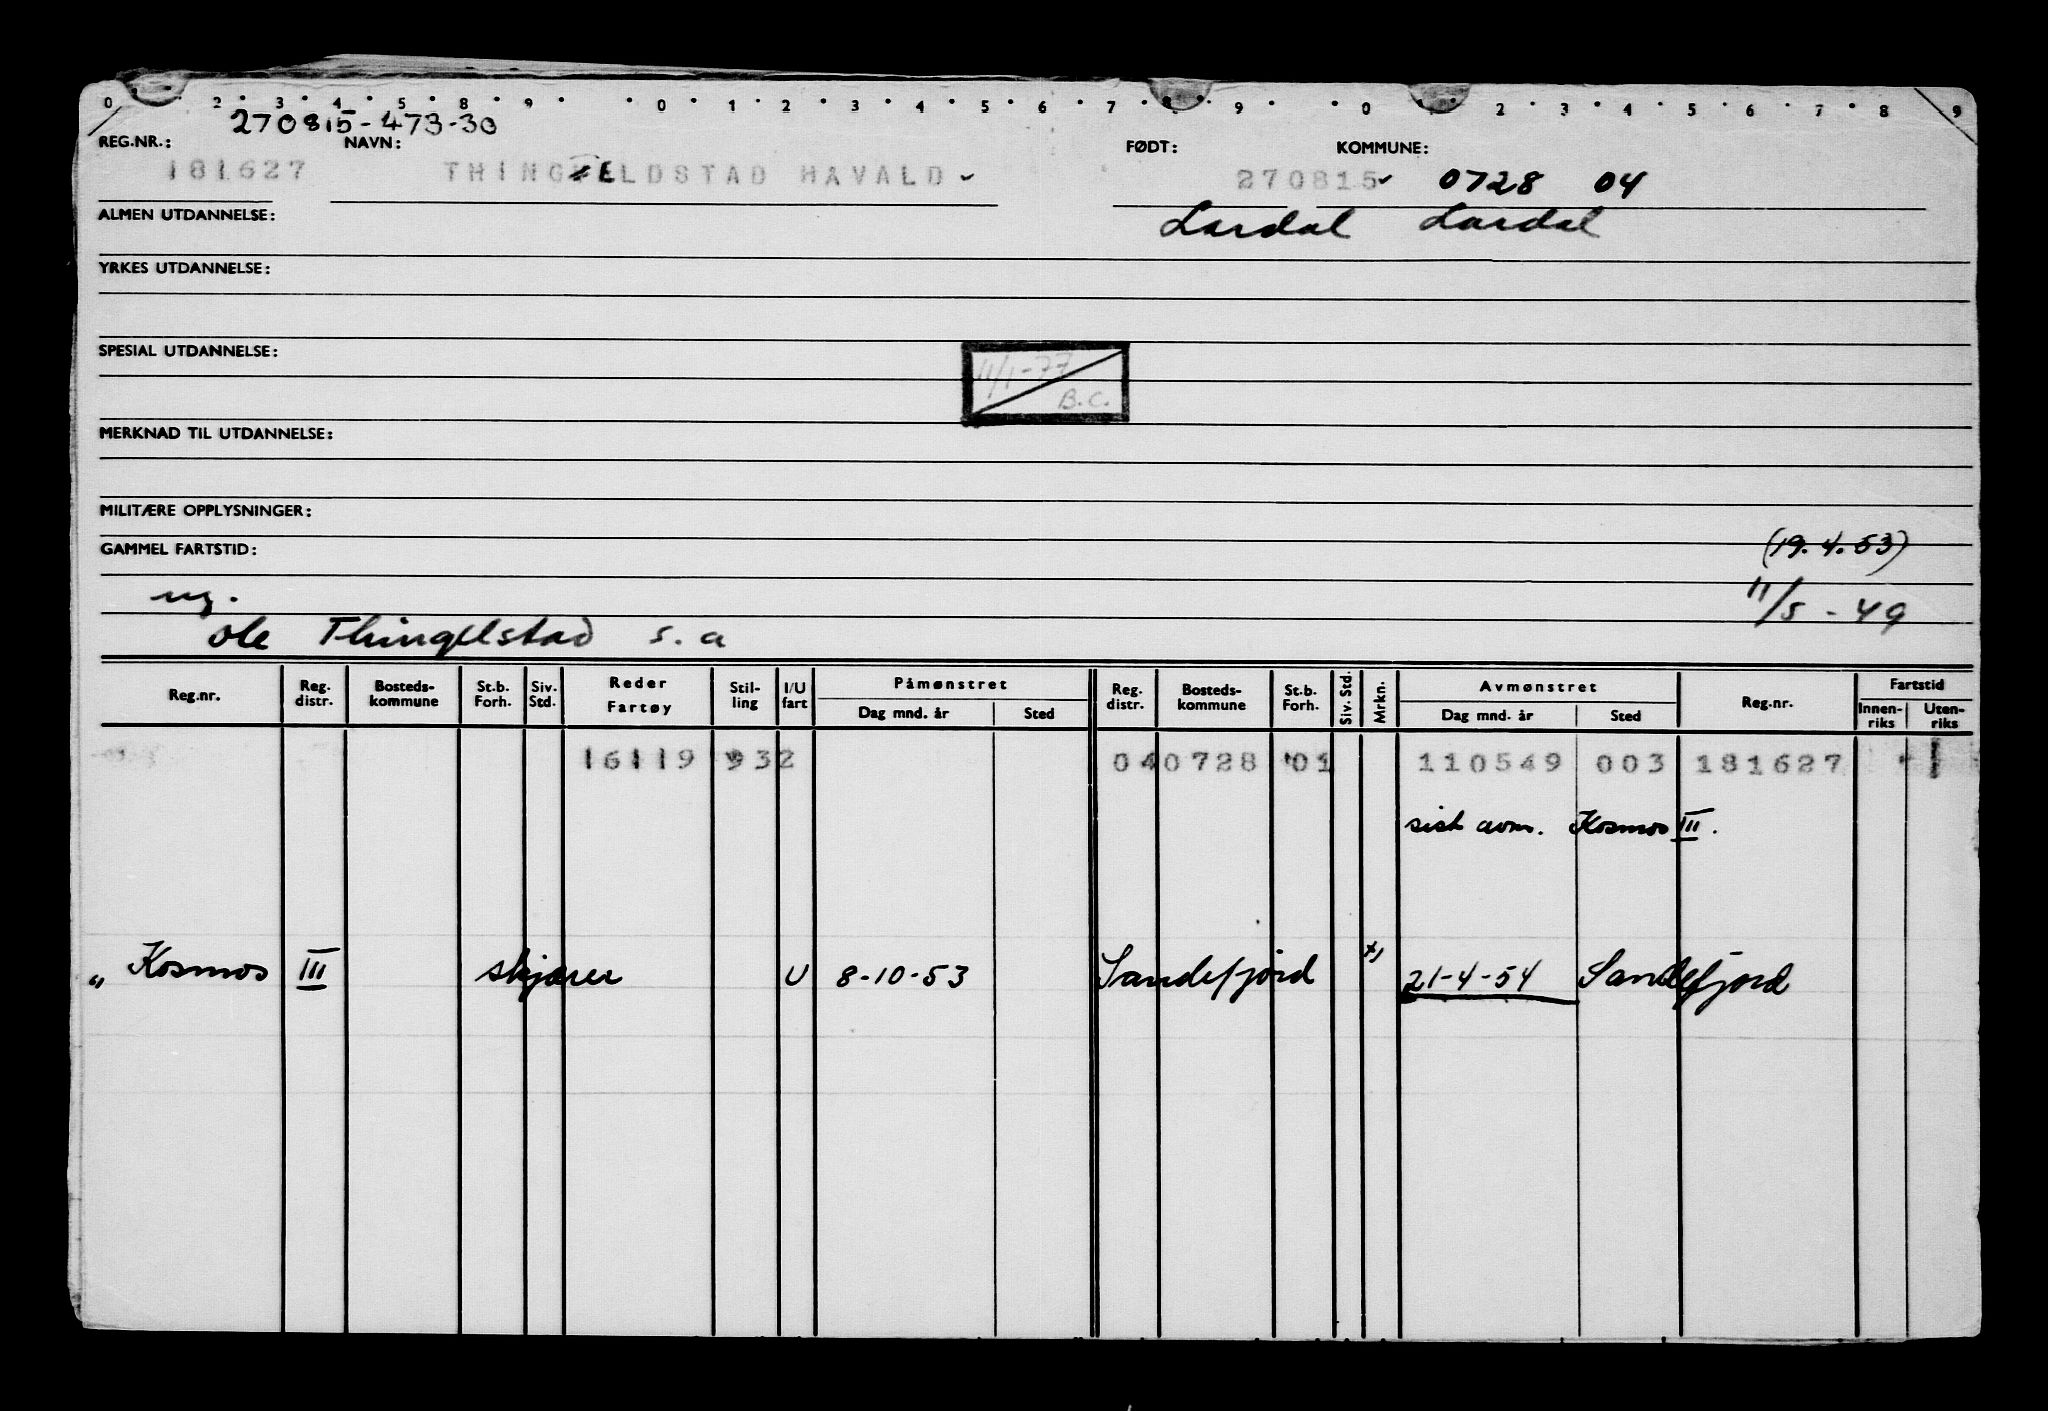 0 2 3 4 5 8 9 0 1 2 3 4 5 6 7 8 9 0 1 2 3 4 5 6 7 8 9
270815-473-30
REG.NR.: NAVN: FØDT: KOMMUNE:
181627 THINGELDSTAD HAVALD 270815 0728 04
ALMEN UTDANNELSE: Lardal Lardal
YRKES UTDANNELSE:
SPESIAL UTDANNELSE:
11/1-77
B.C.
MERKNAD TIL UTDANNELSE:
MILITÆRE OPPLYSNINGER:
GAMMEL FARTSTID: (19.4.53)
ug. 11/5-49
Ole Thingelstad s.a
Reg.nr. Reg. distr. Bosteds- kommune St.b. Forh. Siv. Std. Reder Fartøy Stil- ling I/U fart Påmønstret Dag mnd. år Sted Reg. distr. Bosteds- kommune St.b. Forh. Siv. Std. Mrkn. Avmønstret Dag mnd. år Sted Reg.nr. Fartstid Innen- riks Uten- riks
16119 932 040728 01 110549 003 181627 1
sist avm. Kosmos III.
" Kosmos III skjærer U 8-10-53 Sandefjord x) 21-4-54 Sandefjord